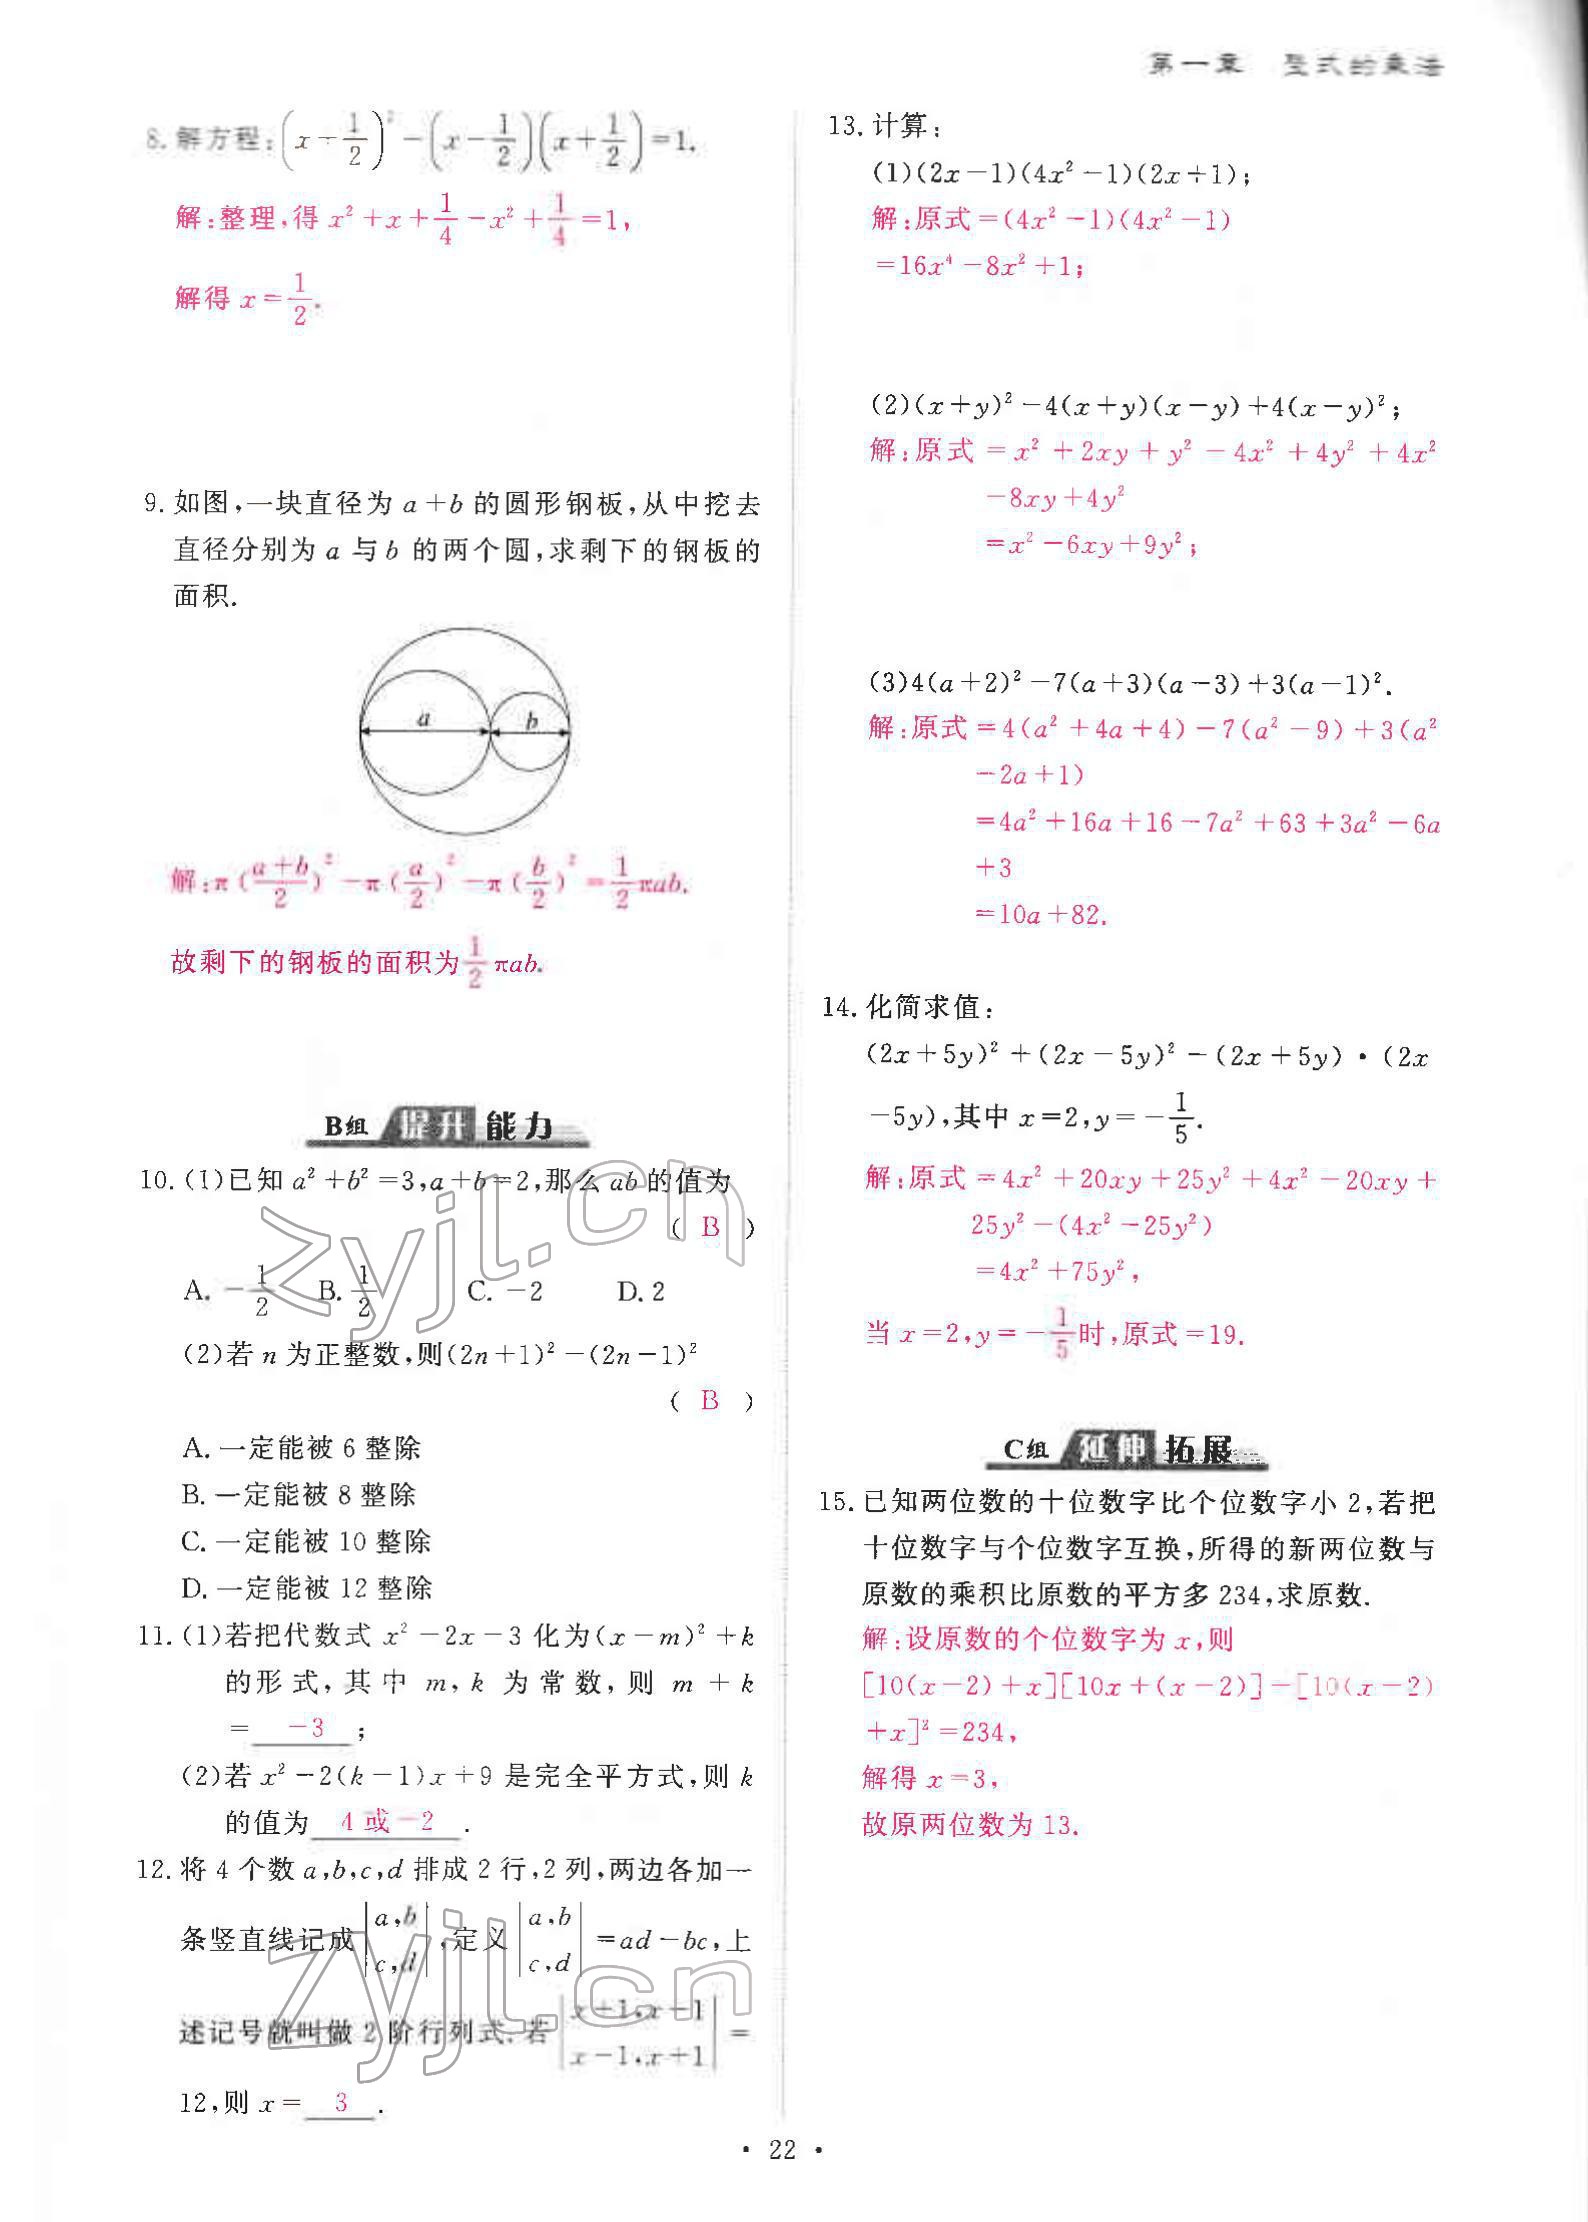 第一章 整式的乘法
8. 解方程:(x+1/2)²-(x-1/2)(x+1/2)=1.
解:整理,得 x²+x+1/4-x²+1/4=1,
解得 x=1/2.
9. 如图,一块直径为 a+b 的圆形钢板,从中挖去
直径分别为 a 与 b 的两个圆,求剩下的钢板的
面积.
a b
解:π(a+b/2)²-π(a/2)²-π(b/2)²=1/2πab.
故剩下的钢板的面积为1/2πab.
B组 提升能力
10. (1)已知 a²+b²=3,a+b=2,那么 ab 的值为
( B )
A. -1/2 B. 1/2 C. -2 D. 2
(2)若 n 为正整数,则(2n+1)²-(2n-1)²
( B )
A. 一定能被 6 整除
B. 一定能被 8 整除
C. 一定能被 10 整除
D. 一定能被 12 整除
11. (1)若把代数式 x²-2x-3 化为(x-m)²+k
的形式,其中 m,k 为常数,则 m+k
= -3 ;
(2)若 x²-2(k-1)x+9 是完全平方式,则 k
的值为 4 或-2 .
12. 将 4 个数 a,b,c,d 排成 2 行,2 列,两边各加一
条竖直线记成|a,b c,d|,定义|a,b c,d|=ad-bc,上
述记号就叫做 2 阶行列式.若|x+1,x-1 x-1,x+1|=
12,则 x= 3 .
13. 计算:
(1)(2x-1)(4x²-1)(2x+1);
解:原式=(4x²-1)(4x²-1)
=16x⁴-8x²+1;
(2)(x+y)²-4(x+y)(x-y)+4(x-y)²;
解:原式=x²+2xy+y²-4x²+4y²+4x²
-8xy+4y²
=x²-6xy+9y²;
(3)4(a+2)²-7(a+3)(a-3)+3(a-1)².
解:原式=4(a²+4a+4)-7(a²-9)+3(a²
-2a+1)
=4a²+16a+16-7a²+63+3a²-6a
+3
=10a+82.
14. 化简求值:
(2x+5y)²+(2x-5y)²-(2x+5y)·(2x
-5y),其中 x=2,y=-1/5.
解:原式=4x²+20xy+25y²+4x²-20xy+
25y²-(4x²-25y²)
=4x²+75y²,
当 x=2,y=-1/5时,原式=19.
C组 延伸拓展
15. 已知两位数的十位数字比个位数字小 2,若把
十位数字与个位数字互换,所得的新两位数与
原数的乘积比原数的平方多 234,求原数.
解:设原数的个位数字为 x,则
[10(x-2)+x][10x+(x-2)]-[10(x-2)
+x]²=234,
解得 x=3,
故原两位数为 13.
zyjl.cn
zyjl.cn
· 22 ·